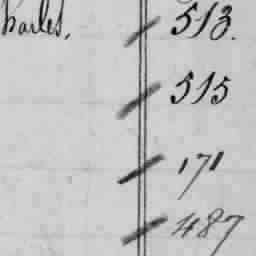 harles, 513.
515
171
487